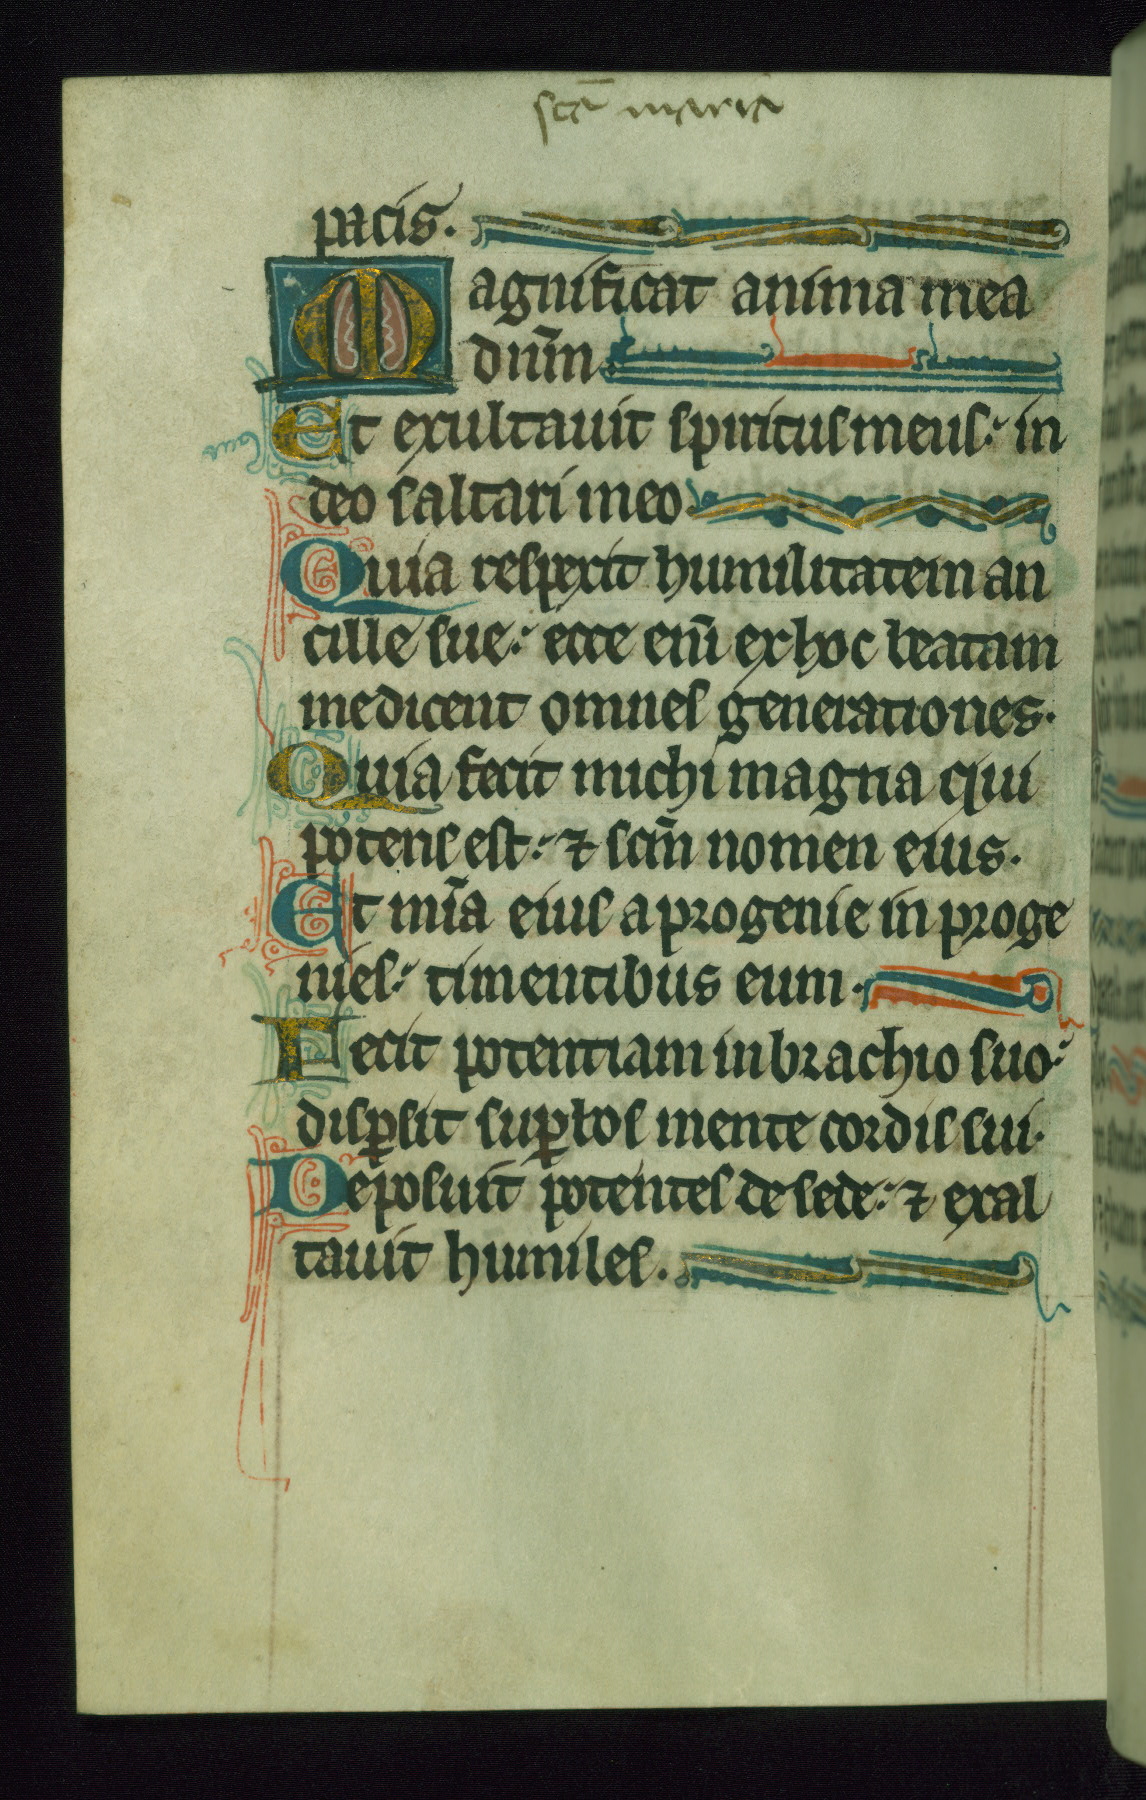 sctē maria
pacis.
Magnificat anima mea
dnm̄
Et exultauit spiritus meus: in
deo saltari meo
Quia respexit humilitatem an
cille sue: ecce enī ex hoc beatam
me dicent omnes generationes.
Quia fecit michi magna qui
potens est: ⁊ scm̄ nomen eius.
Et mīa eius a progenie in proge
nies: timentibus eum.
Fecit potentiam in brachio suo:
disꝑsit suꝑbos mente cordis sui.
Deposuit potentes de sede: ⁊ exal
tauit humiles.